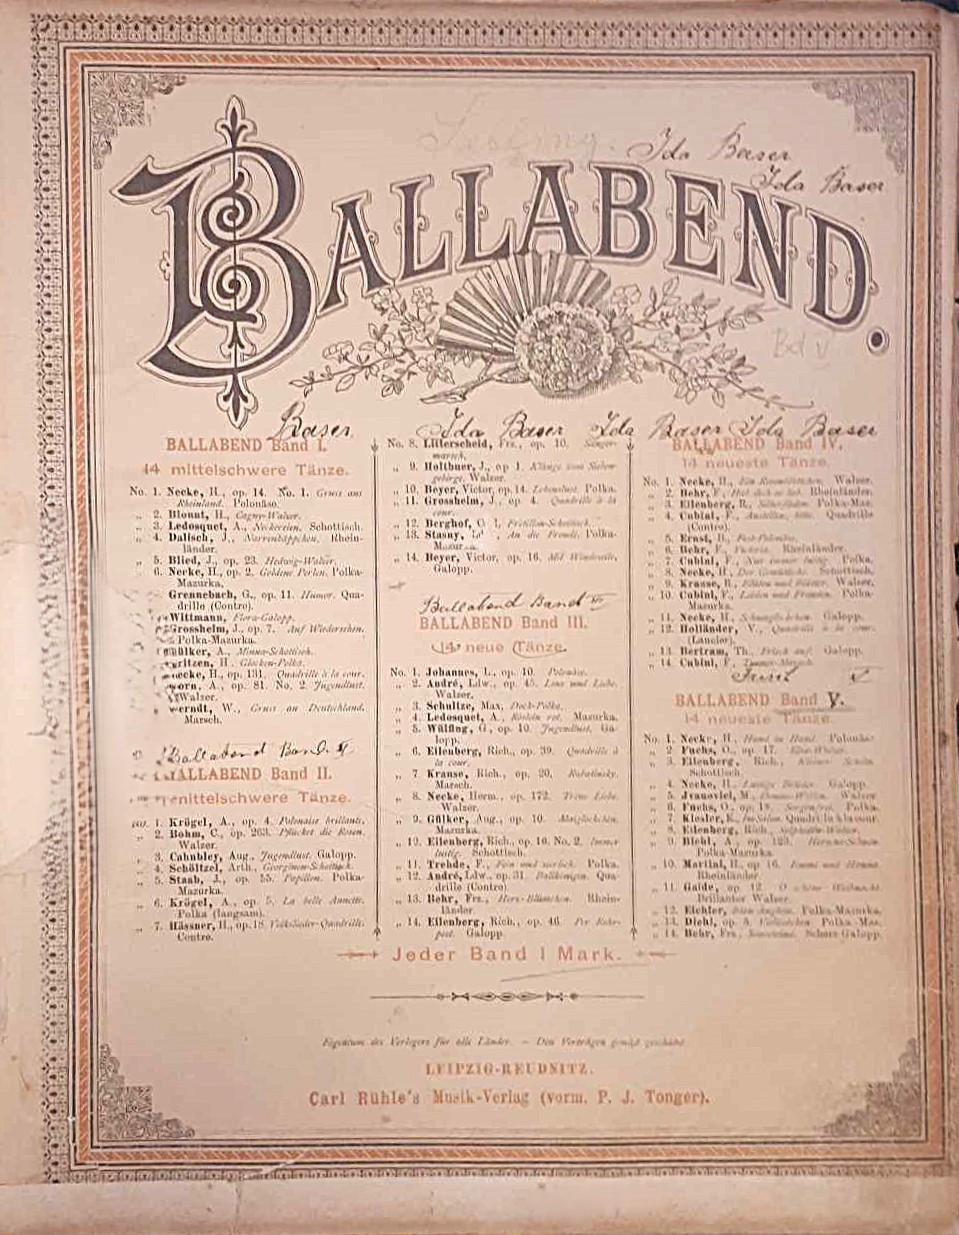 Ida Baser
Ida Baser
BALLABEND.
Bd V
Baser Ida Baser Ida Baser Ida Baser
BALLABEND Band I.
14 mittelschwere Tänze.
No. 1. Necke, H., op. 14. No. 1. Gruss aus
Rheinland. Polonäse.
„ 2. Blount, H., Cagny-Walzer.
„ 3. Ledosquet, A., Neckereien. Schottisch.
„ 4. Dalisch, J., Narrenkäppchen. Rhein-
länder.
„ 5. Blied, J., op. 23. Hedwig-Walzer.
„ 6. Necke, H., op. 2. Goldene Perlen. Polka-
Mazurka.
Grennebach, G., op. 11. Humor. Qua-
drille (Contre).
Wittmann, Flora-Galopp.
Grossheim, J., op. 7. Auf Wiedersehen.
Polka-Mazurka.
ülker, A., Minna-Schottisch.
ritzen, H. Glocken-Polka.
ecke, H., op. 131. Quadrille à la cour.
orn, A., op. 81. No. 2. Jugendlust.
Walzer.
erndt, W., Gruss an Deutschland.
Marsch.
Ballabend Band VI
ALLABEND Band II.
mittelschwere Tänze.
1. Krögel, A., op. 4. Polonaise brillante.
„ 2. Bohm, C., op. 263. Pflücket die Rosen.
Walzer.
„ 3. Cahnbley, Aug., Jugendlust. Galopp.
„ 4. Schöltzel, Arth., Georginen-Schottisch.
„ 5. Staab, J., op. 55. Papillon. Polka-
Mazurka.
„ 6. Krögel, A., op. 5. La belle Annette.
Polka (langsam).
„ 7. Hässner, H., op. 18. Volkslieder-Quadrille.
Contre.
No. 8. Litterscheid, Frz., op. 10. Sänger-
marsch.
„ 9. Holtbuer, J., op 1. Klänge vom Sieben-
gebirge. Walzer.
„ 10. Beyer, Victor, op. 14. Lebenslust. Polka.
„ 11. Grossheim, J., op. 4. Quadrille à la
cour.
„ 12. Berghof, Postillon-Schottisch.
„ 13. Stasny, An die Fremde. Polka-
Mazurka.
„ 14. Beyer, Victor, op. 16. Mit Windeseile.
Galopp.
Ballabend Band VI
BALLABEND Band III.
14 neue Tänze.
No. 1. Johannes, L., op. 10. Polonäse.
„ 2. André, Ldw., op. 45. Lenz und Liebe.
Walzer.
„ 3. Schultze, Max, Dock-Polka.
„ 4. Ledosquet, A., Röslein rot. Mazurka.
„ 5. Wülfing, G., op. 10. Jugendlust. Ga-
lopp.
„ 6. Eilenberg, Rich., op. 39. Quadrille à
la cour.
„ 7. Krause, Rich., op. 20.
Marsch.
„ 8. Necke, Herm., op. 172. Treue Liebe.
Walzer.
„ 9. Gülker, Aug., op. 10. Maiglöckchen.
Mazurka.
„ 10. Eilenberg, Rich., op. 16. No. 2. Immer
lustig. Schottisch.
„ 11. Trehde, F., Fein und zierlich. Polka.
„ 12. André, Ldw., op. 31. Ballkönigin. Qua-
drille (Contre).
„ 13. Behr, Frz., Herz-Blättchen. Rhein-
länder.
„ 14. Eilenberg, Rich., op. 46. Per Rohr-
post. Galopp.
BALLABEND Band IV.
14 neueste Tänze.
No. 1. Necke, H., Walzer.
„ 2. Behr, F., Hab dich so lieb. Rheinländer.
„ 3. Eilenberg, R., Polka-Maz.
„ 4. Cubini, F., Quadrille
(Contre).
„ 5. Ernst, B., Fest-Polonäse.
„ 6. Behr, F., Victoria. Rheinländer.
„ 7. Cubini, F., Nur immer lustig. Polka.
„ 8. Necke, H., Schottisch.
„ 9. Krause, R., Blüten und Blätter. Walzer.
„ 10. Cubini, F., Polka-
Mazurka.
„ 11. Necke, H., Polka.
„ 12. Holländer, V., Quadrille à la cour.
(Lancier).
„ 13. Bertram, Th., Frisch auf! Galopp.
„ 14. Cubini, F.,
V
BALLABEND Band V.
14 neueste Tänze.
No. 1. Necke, H., Hand in Hand. Polonäse
„ 2. Fuchs, O., op. 17. Walzer.
„ 3. Eilenberg, Rich.,
Schottisch.
„ 4. Necke, H., Lustige Brüder. Galopp.
„ 5. Ivanovici, M., Walzer
„ 6. Fuchs, O., op. 18. Sorgenfrei. Polka.
„ 7. Kiesler, K., Im Salon. Quadrille à la cour.
„ 8. Eilenberg, Rich.,
„ 9. Biehl, A., op. 123.
Polka-Mazurka.
„ 10. Martini, H., op 16.
Rheinländer.
„ 11. Gaide, op. 12.
Brillanter Walzer.
„ 12. Eichler, Polka-Mazurka.
„ 13. Diehl, op. 5. Polka-Maz.
„ 14. Behr, Frz., Scherz-Galopp.
Jeder Band 1 Mark.
Eigentum des Verlegers für alle Länder. — Den Verträgen gemäß geschützt.
LEIPZIG-REUDNITZ.
Carl Rühle's Musik-Verlag (vorm. P. J. Tonger).